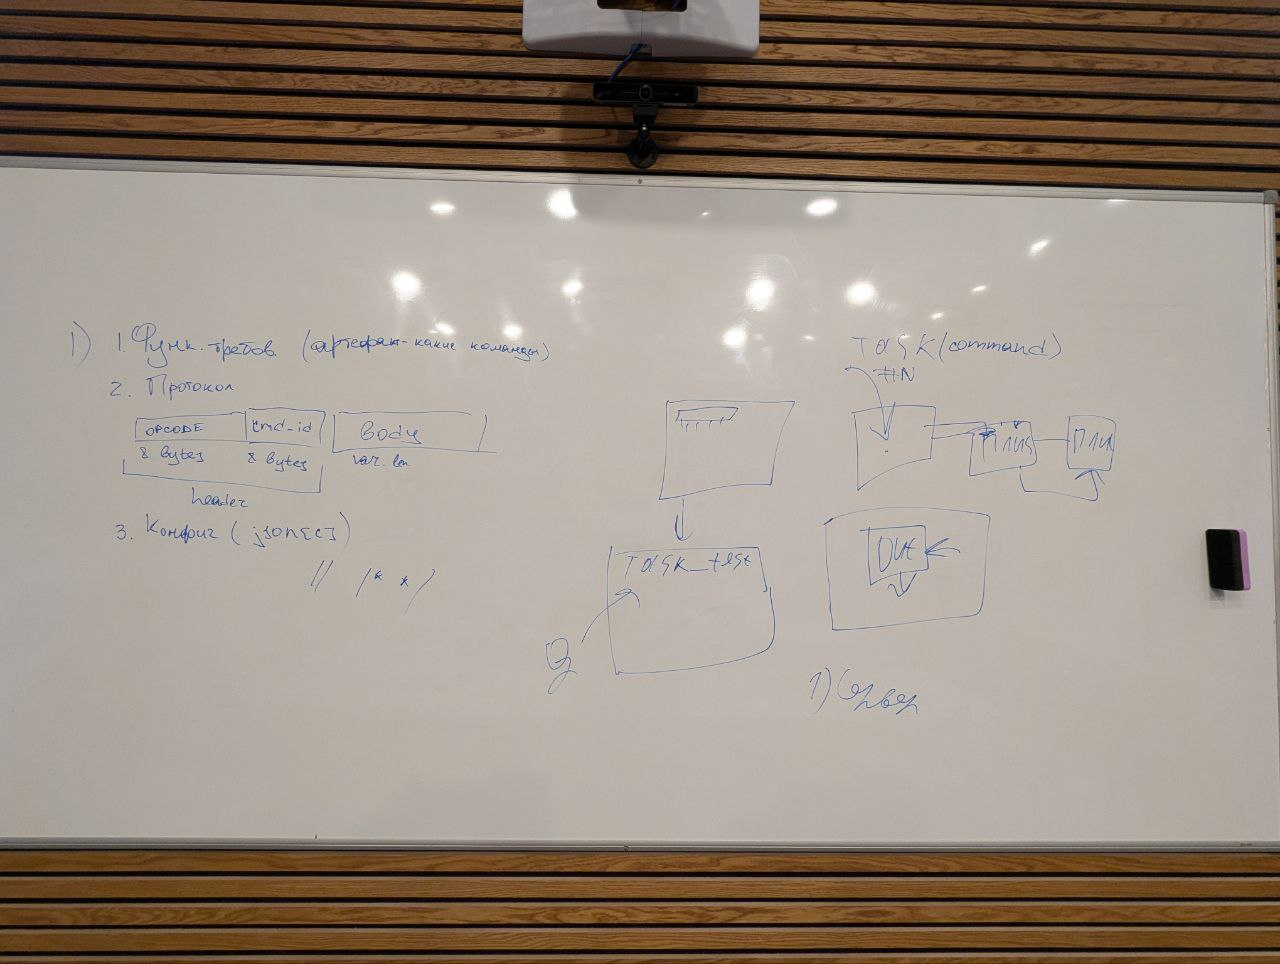 1) 1. Функ. требов. (артефакт - какие команды)
2. Протокол
OPCODE cmd-id Body
8 bytes 8 bytes var. len
header
3. Конфиг (json[c])
// /* */
TASK (command)
#N
ПЛИС ПЛИС
TASK_test
DUT
1) Сервер